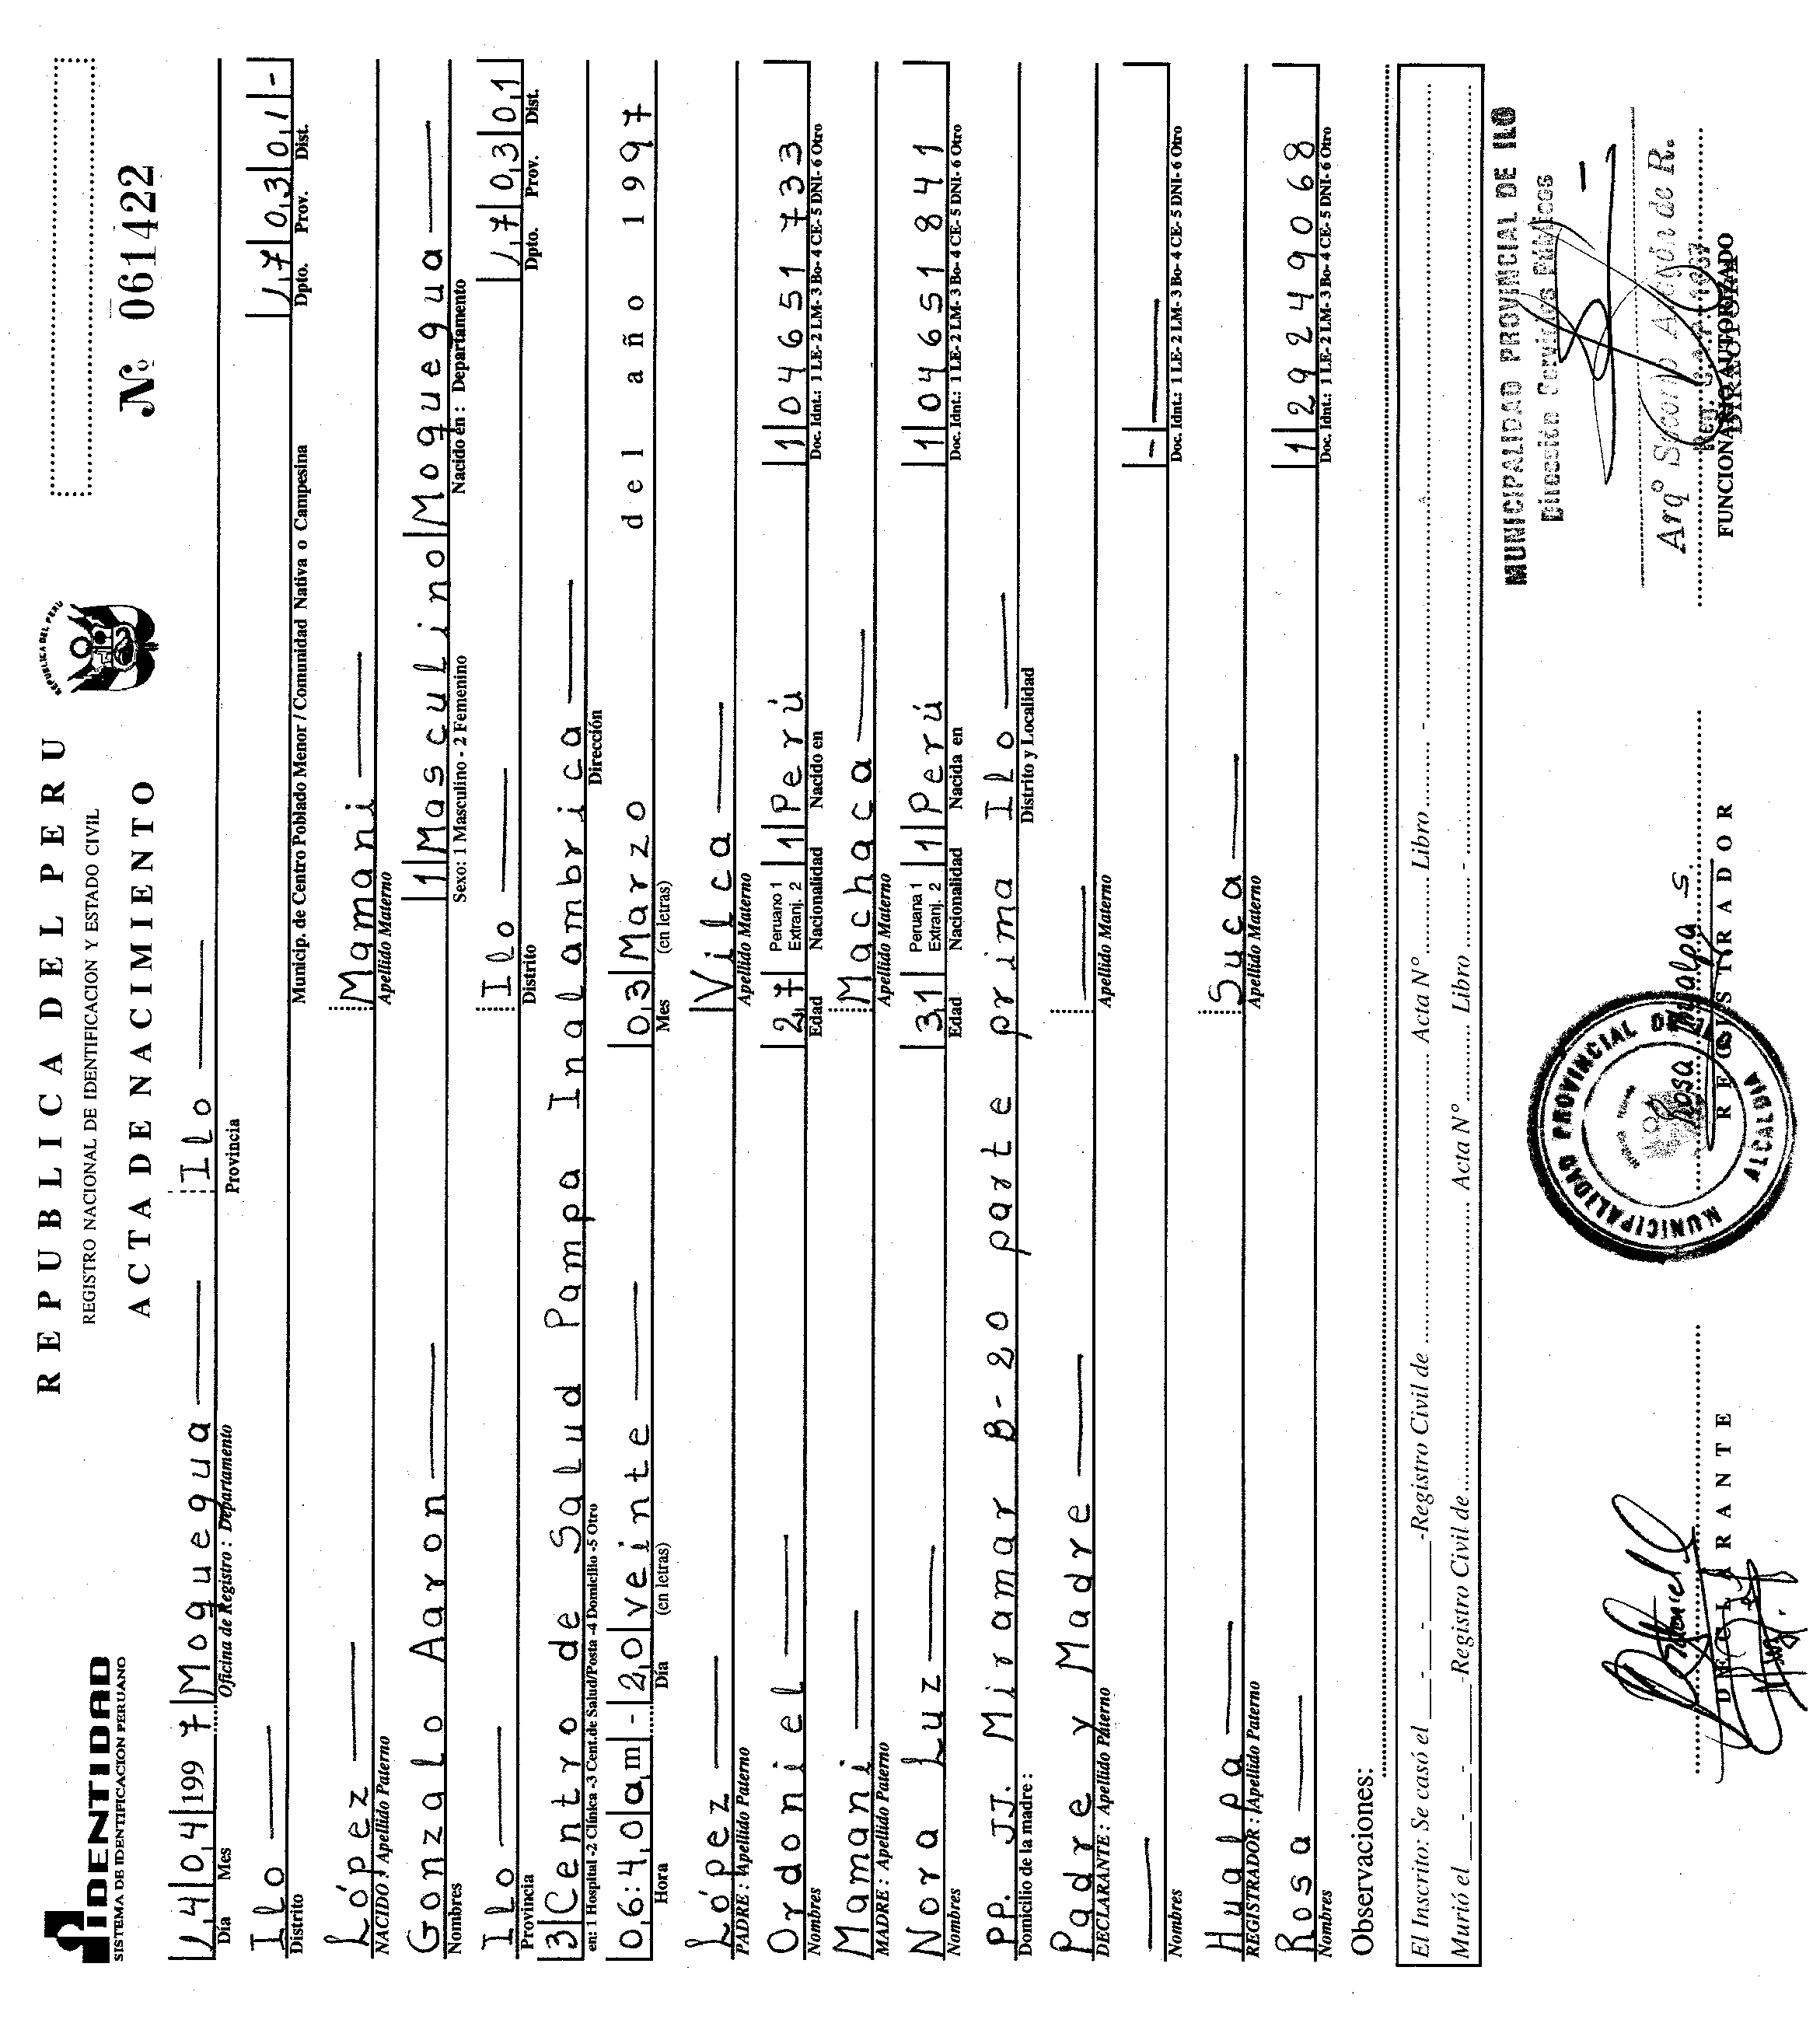 IDENTIDAD
SISTEMA DE IDENTIFICACION PERUANO
REPUBLICA DEL PERU
REGISTRO NACIONAL DE IDENTIFICACION Y ESTADO CIVIL
ACTA DE NACIMIENTO
REPUBLICA DEL PERU
Nº 061422
14 04 1997 Moquegua Ilo
Día Mes Oficina de Registro : Departamento Provincia
Ilo 17 03 01 -
Distrito Municip. de Centro Poblado Menor / Comunidad Nativa o Campesina Dpto. Prov. Dist.
López Mamani
NACIDO : Apellido Paterno Apellido Materno
Gonzalo Aaron 1 Masculino Moquegua
Nombres Sexo: 1 Masculino - 2 Femenino Nacido en : Departamento
Ilo Ilo 17 03 01
Provincia Distrito Dpto. Prov. Dist.
3 Centro de Salud Pampa Inalambrica
en: 1 Hospital -2 Clínica -3 Cent.de Salud/Posta -4 Domicilio -5 Otro Dirección
06:40 am - 20 veinte 03 Marzo del año 1997
Hora Día (en letras) Mes (en letras)
López Vilca
PADRE : Apellido Paterno Apellido Materno
Ordoniel 27 Peruano 1 Extranj. 2 1 Perú 1 04651733
Nombres Edad Nacionalidad Nacido en Doc. Idnt.: 1 LE- 2 LM- 3 Bo- 4 CE- 5 DNI- 6 Otro
Mamani Machaca
MADRE : Apellido Paterno Apellido Materno
Nora Luz 31 Peruana 1 Extranj. 2 1 Perú 1 04651841
Nombres Edad Nacionalidad Nacida en Doc. Idnt.: 1 LE- 2 LM- 3 Bo- 4 CE- 5 DNI- 6 Otro
PP. JJ. Miramar B-20 parte prima Ilo
Domicilio de la madre : Distrito y Localidad
Padre y Madre
DECLARANTE : Apellido Paterno Apellido Materno
-
Nombres Doc. Idnt.: 1 LE- 2 LM- 3 Bo- 4 CE- 5 DNI- 6 Otro
Hualpa Suca
REGISTRADOR : Apellido Paterno Apellido Materno
Rosa 1 29249068
Nombres Doc. Idnt.: 1 LE- 2 LM- 3 Bo- 4 CE- 5 DNI- 6 Otro
Observaciones:
El Inscrito: Se casó el - - -Registro Civil de Acta Nº Libro -
Murió el - - -Registro Civil de Acta Nº Libro -
MUNICIPALIDAD PROVINCIAL DE ILO
Dirección Servicios Públicos
MUNICIPALIDAD PROVINCIAL DE ILO
ALCALDIA
Rosa Hualpa S.
Arqº
de R.
DECLARANTE
REGISTRADOR
FUNCIONARIO AUTORIZADO
DIRECTORA